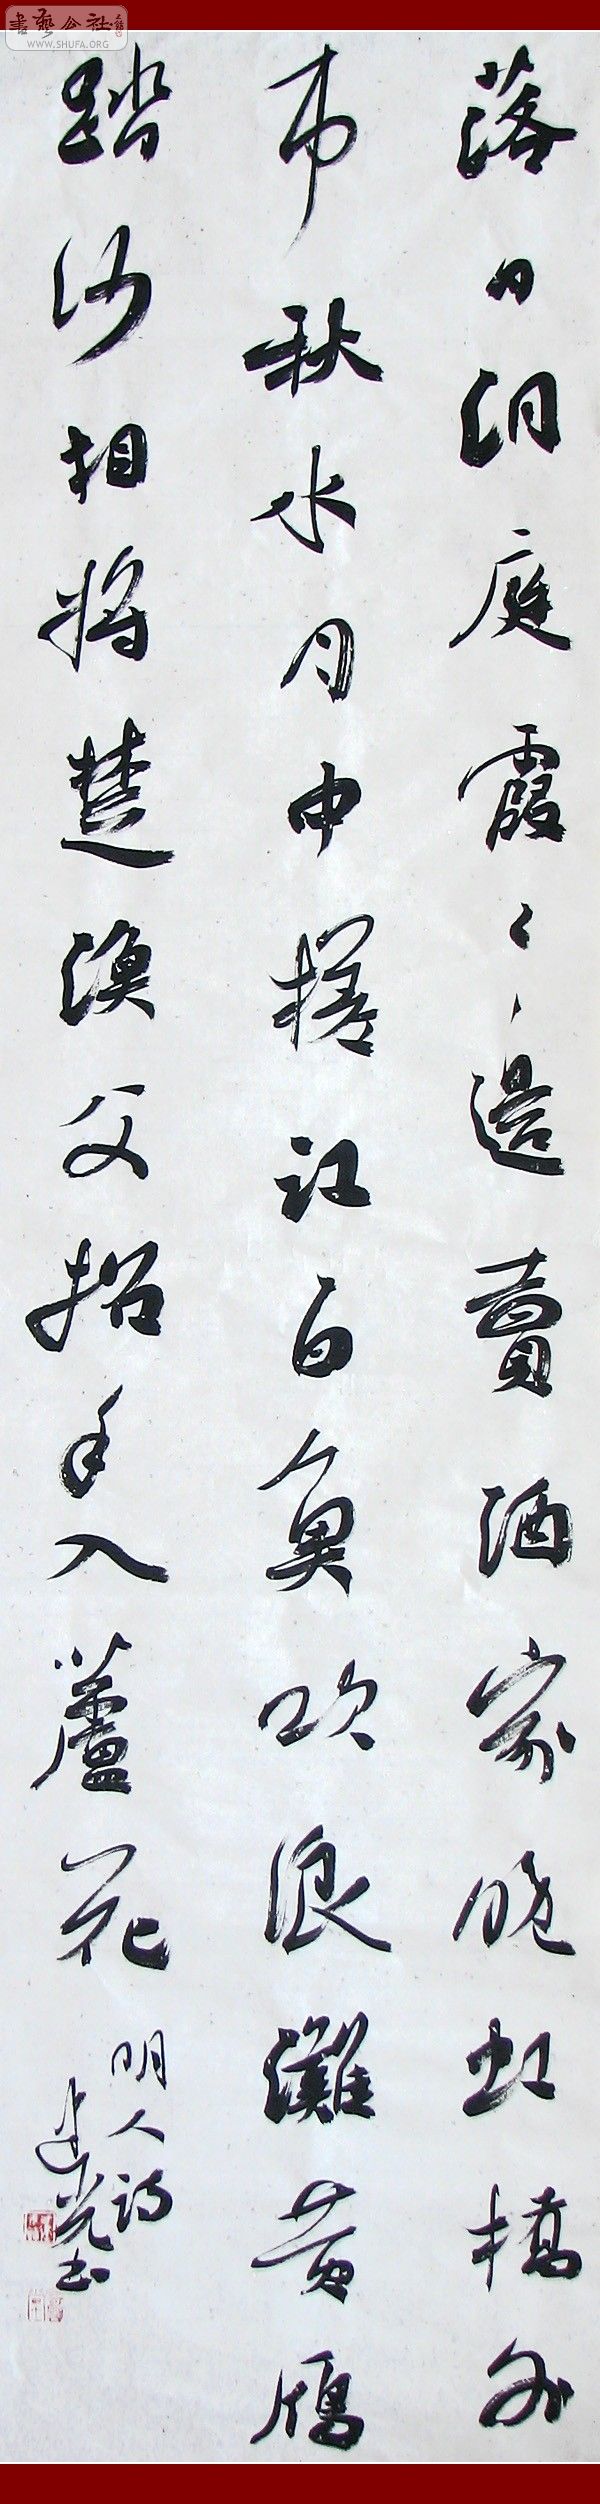 書藝公社
WWW.SHUFA.ORG
落日洞庭霞〻邊賣酒家晚虹橋外
市秋水月中槎江白魚吹浪灘黃鴈
踏沙相將楚漁父招手入蘆花
明人詩
建光書